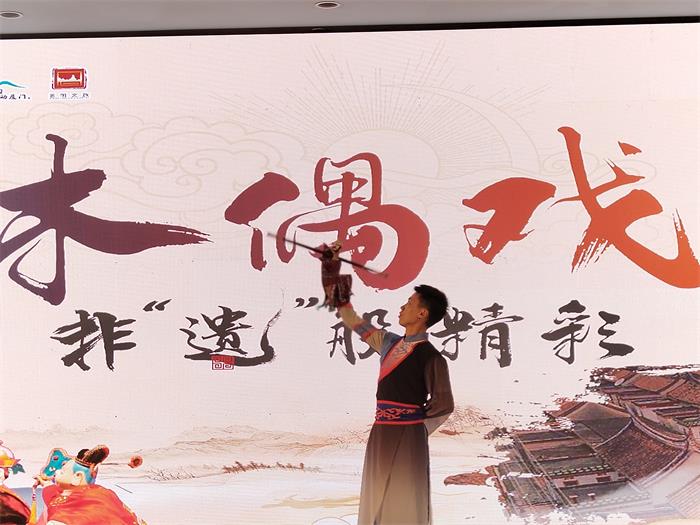 木偶戏
非“遗”般精彩